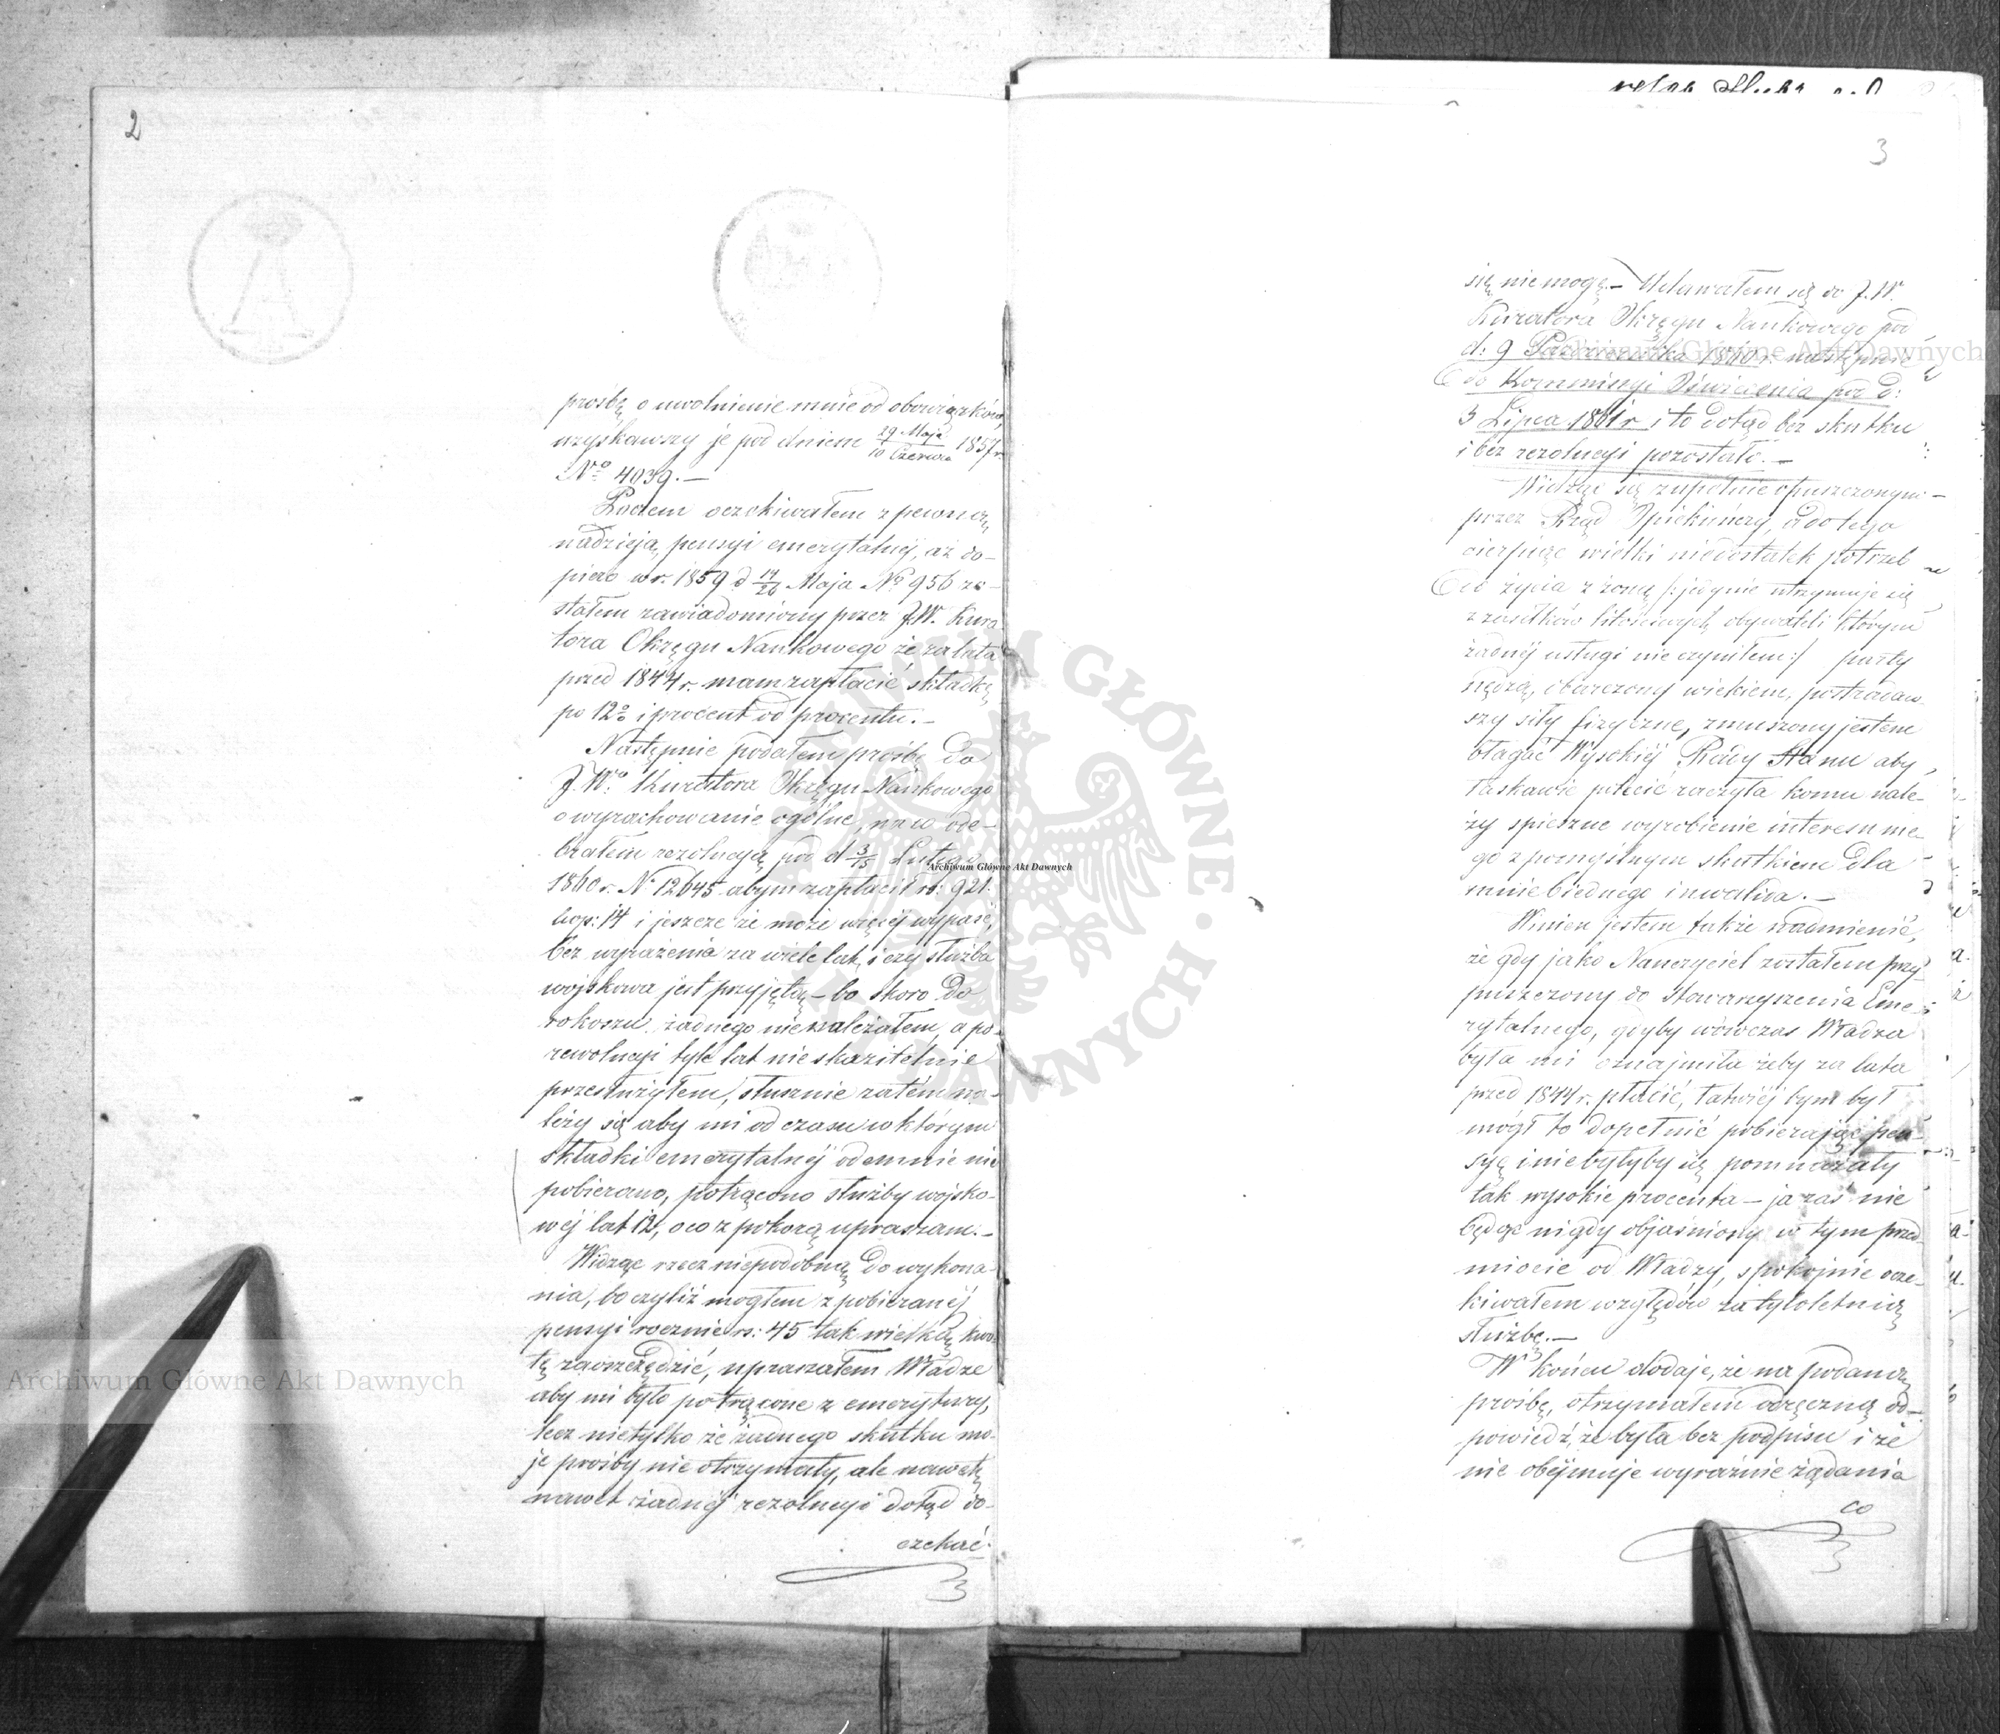 2
prośbę o uwolnienie mnie od obowiązków,
uzyskawszy je pod dniem 29 Maja / 10 Czerwca 1857 r.
No 4039.—
Potem oczekiwałem z pewną
nadzieją, pensyi emerytalnéj, aż do-
piero w r. 1859 d 14/26 Maja No 956 zo-
stałem zawiadomiony przez J.W. Kura-
tora Okręgu Naukowego że za lata
przed 1844 r. mam zapłacić składkę
po 12% i procent od procentu.—
Następnie podałem prośbę do
J.Wo. Kuratora Okręgu Naukowego
o wyrachowanie ogólne, na co ode-
brałem rezolucyą pod d 3/15 Lutego
1860 r. N 12645 abym zapłacił rs: 921.
kop: 14 i jeszcze że może więcéj wypaść,
bez wyrażenia za wiele lat, i czy służba
wojskowa jest przyjętą – bo skoro do
rokoszu żadnego nie należałem, a po
rewolucyi tyle lat nieskazitelnie
przesłużyłem, słusznie zatém na-
leży się aby mi od czasu w którym
składki emerytalnéj odemnie nie
pobierano, potrącono służby wojsko-
wéj lat 12, o co z pokorą upraszam.—
Widząc rzecz niepodobną do wykona-
nia, bo czyliż mogłem z pobieranéj
pensyi rocznie rs: 45 tak wielką kwo-
tę zaoszczędzić, upraszałem Władze
aby mi było potrącone z emerytury,
lecz nietylko że żadnego skutku mo-
je prośby nie otrzymały, ale nawet
nawet żadnéj rezolucyi dotąd do-
czekać
3
się nie mogę.— Udawałem się do J.W.
Kuratora Okręgu Naukowego pod
d: 9 Października 1860 r. następnie
do Kommissyi Oświecenia pod d:
3 Lipca 1861 r i to dotąd bez skutku
i bez rezolucyi pozostało.—
Widząc się zupełnie opuszczonym
przez Rząd Opiekuńczy, a do tego
cierpiąc wielki niedostatek potrzeb
do życia z żoną /: jedynie utrzymuje się
z zasiłków litościwych obywateli którym
żadnéj usługi nie czyniłem :/ party
nędzą, obarczony wiekiem, postradaw-
szy siły fizyczne, zmuszony jestem
błagać Wysokiéj Rady Stanu aby
łaskawie polecić raczyła komu nale-
ży spieszne wyrobienie interesu me-
go z pomyślnym skutkiem dla
mnie biednego inwalida.—
Winien jestem także nadmienić,
że gdy jako Nauczyciel zostałem przy-
puszczony do stowarzyszenia Eme-
rytalnego, gdyby wówczas Władza
była mi oznajmiła żeby za lata
przed 1844 r. płacić, łatwiéj bym był
mógł to dopełnić pobierając pen-
syę i nie byłyby się pomnażały
tak wysokie procenta – ja zaś nie
będąc nigdy objaśniony w tym przed-
miocie od Władzy, spokojnie ocze-
kiwałem względów za tyloletnią
służbę.—
W końcu dodaje, że na podaną
prośbę, otrzymałem odręczną od-
powiedź, że była bez podpisu i że
nie obéjmuje wyraźnie żądania
co
Archiwum Główne Akt Dawnych
Archiwum Główne Akt Dawnych
Archiwum Główne Akt Dawnych
ARCHIWUM GŁÓWNE AKT DAWNYCH